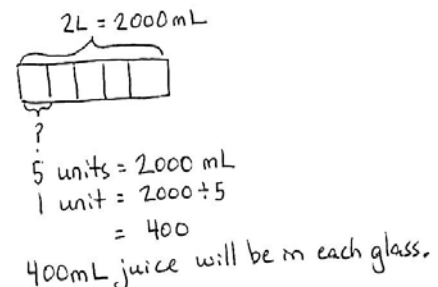 2L = 2000 mL
?
5 units = 2000 mL
1 unit = 2000 ÷ 5
= 400
400mL juice will be in each glass.